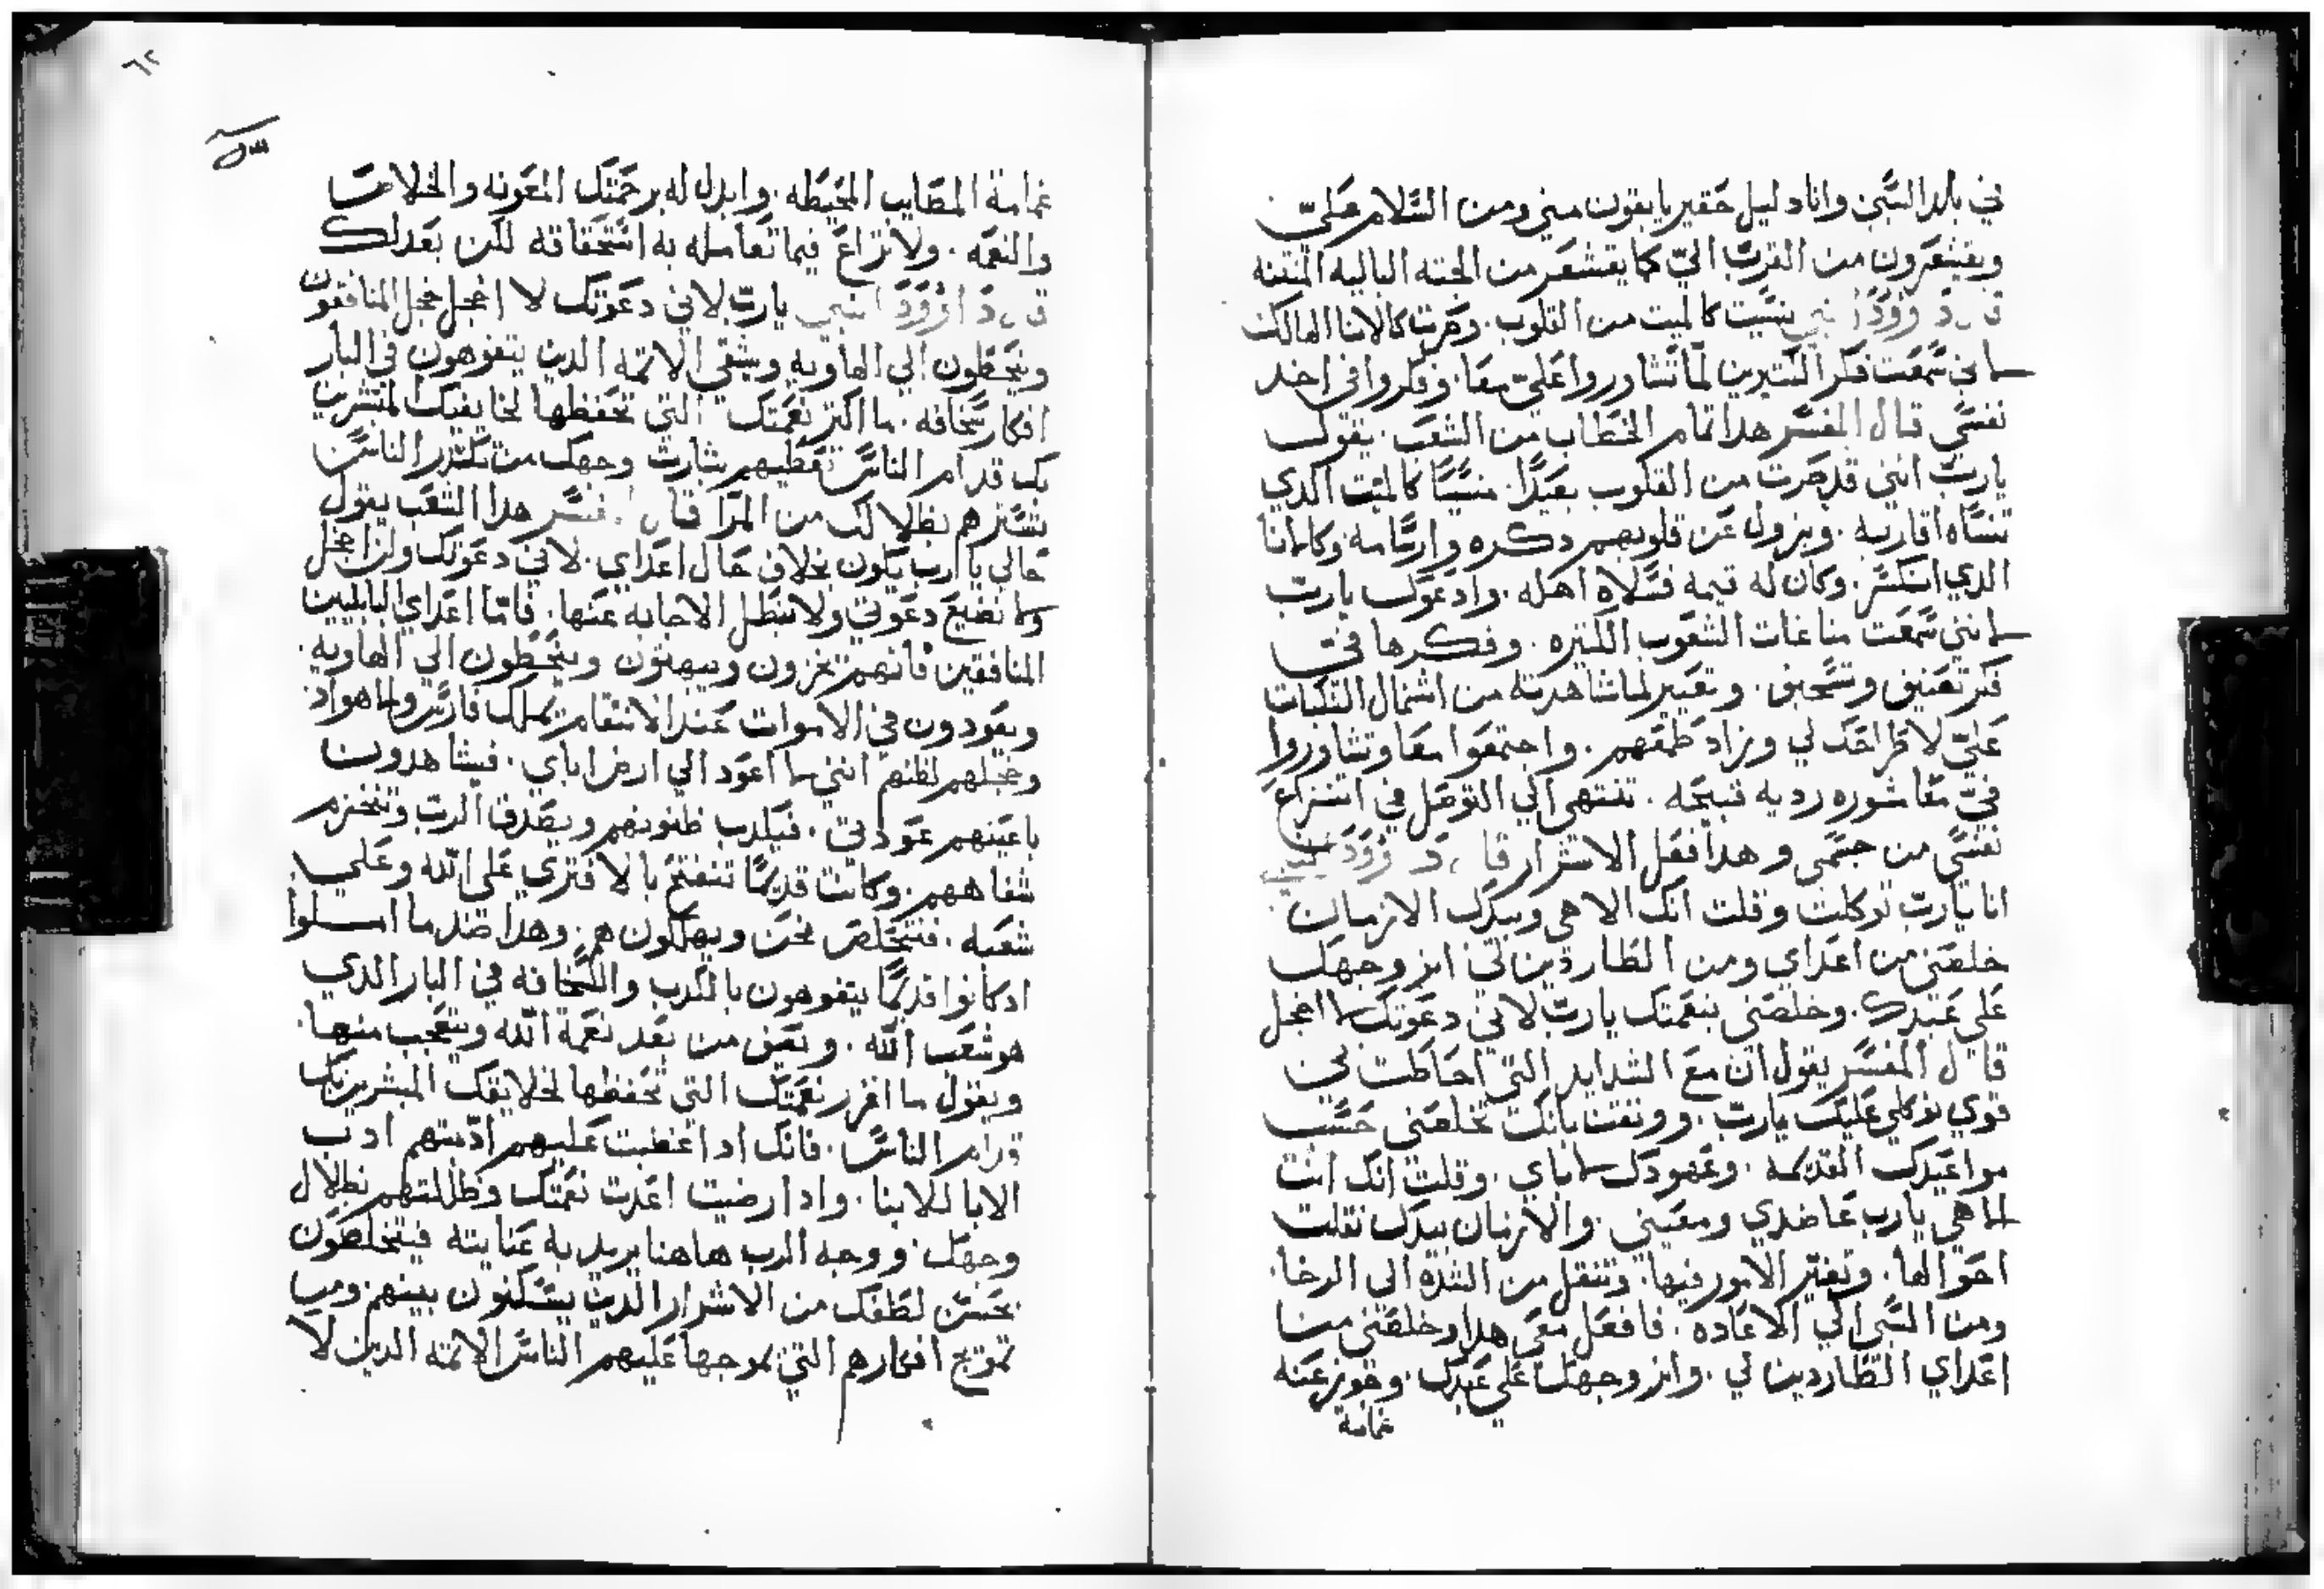 في بلد السبي وانا دليل حقير يابقون مني ومن السلام علي
ويقشعرون من القرب الي كما يقشعر من الجته الباليه المنتنه
قال داوود النبي نسيت كالميت من القلوب. وصرت كالانا الهالك
لاني سمعت فكر الكتيرين لما تشاوروا علي معا. وفكروا في اخد
نفسي قال المفسر هدا تمام الخطاب من الشعب. يقول
يارب انني قد صرت من القلوب بعيدا. منسيا كالميت الدي
تنساه اقاربه. ويزول عن قلوبهم دكره وارتسامه. وكالانا
الدي انكسر. وكان له قيمه فسلاه اهله. وادعوك يارب
لانني سمعت مناغات الشعوب الكتيره. وفكرها في
فكر تعنيق وتسحيق. وتعيير لما شاهدته من اشتمال النكبات
علي لاطراحك لي وزاد طمعهم. واجتمعوا معا وتشاوروا
في معا شوره رديه قبيحه. تنتهي الي التوصل في انتزاع
نفسي من جسمي وهدا فعل الاشرار قال داوود النبي
انا يارب توكلت وقلت انك الاهي وبيدك الازمان
خلصني من اعداي ومن الطاردين لي انر وجهك
علي عبدك. وخلصني بنعمتك يارب لاني دعوتك لا اخجل
قال المفسر يقول ان مع الشدايد التي احاطت بي
قوي توكلي عليك يارب. ووتقت بانك تخلصني حسب
مواعيدك القديمه. وعهودك لاباي. وقلت انك انت
الاهي يارب عاضدي ومعيني. والازمان بيدك تقلب
احوالها. وتغير الامور فيها. وتنقل من الشده الي الرخا.
ومن السبي الي الاعاده. فافعل معي هدا وخلصني من
اعداي الطاردين لي. وانر وجهك علي عبدك. وجوز عنه
غمامة
٦٢
غمامة المصايب المحيطه. وابدل له برحمتك المعونه والخلاص
والنعمه. ولا تراع فيما تعامله به استحقاقه لكن بعدلك
قال داوود النبي يارب لاني دعوتك لا اخجل يخجل المنافقون
وينحطون الي الهاويه وشفي الاتمه الدين يتفوهون في البار
افكار سخافه. ما اكتر نعمتك التي تحفظها لخايفيك المبشرين
بك قدام الناس تغطيهم بتارت وجهك من تكدر الناس
تسترهم بظلالك من المرا قال المفسر هدا الشعب يقول
حالي يارب يكون بخلاف حال اعداي. لاني دعوتك ولن اخجل
ولا تضيع دعوتي ولا تبطل الاجابه عنها. فاما اعداي البابليين
المنافقين فانهم يخزون ويبهتون وينحطون الي الهاويه.
ويعودون في الاموات عند الانتقام بملك فارس والاهواد
وخجلهم لظنهم انني لا اعود الي ارض اباي. فيشاهدون
باعينهم عودتي. فيكدب ظنونهم ويصدق الرب وتنخزم
شفاههم. وكانت قديما تنفتح بالافتري علي الله وعلي
شعبه. فنتخلص نحن ويهلكون هم. وهدا ضد ما املوا
ادكانوا قديما يتفوهون بالكدب والسخافه في البار الدي
هو شعب الله. وتصف من بعد نعمة الله ويتعجب منها.
ويقول ما اغزر نعمتك التي تحفظها لخلايقك المبشرين بك
قدام الناس. فانك ادا غضبت عليهم ادبتهم ادب
الابا للابنا. وادا رضيت اعدت نعمتك وظللتهم بظلال
وجهك. ووجه الرب هاهنا يريد به عنايته فيتخلصون
بحسن لطفك من الاشرار الدين يسكنون بينهم ومن
تموج افكارهم التي يموجها عليهم الناس الاتمه الدين لا